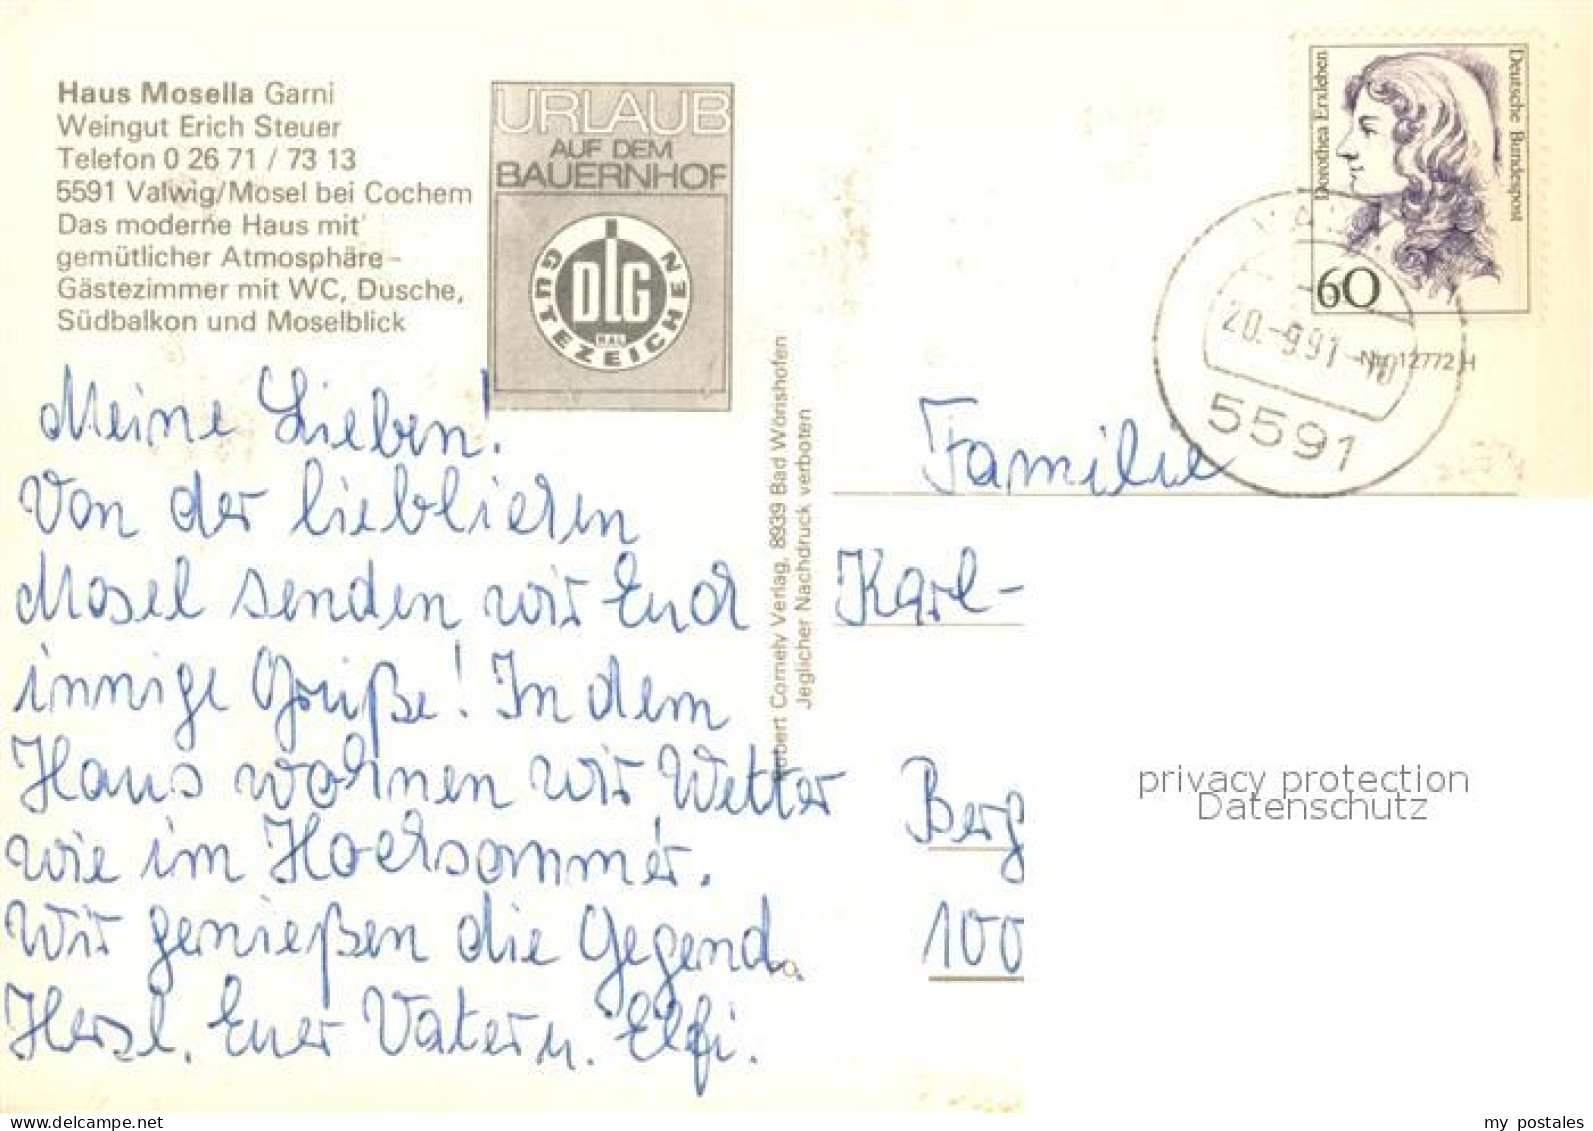 Haus Mosella Garni
Weingut Erich Steuer
Telefon 0 26 71 / 73 13
5591 Valwig/Mosel bei Cochem
Das moderne Haus mit
gemütlicher Atmosphäre –
Gästezimmer mit WC, Dusche,
Südbalkon und Moselblick
URLAUB
AUF DEM
BAUERNHOF
DLG
RAL
GÜTEZEICHEN
Meine Lieben!
Von der lieblichen
Mosel senden wir Euch
innige Grüße! In dem
Haus wohnen wir Wetter
wie im Hochsommer.
Wir genießen die Gegend.
Herzl. Euer Vater u. Elfi.
Robert Cornely Verlag, 8939 Bad Wörishofen
Jeglicher Nachdruck verboten
Dorothea Erxleben
Deutsche Bundespost
60
20.-9.91-10
5591
Nr. 12772 H
Familie
Karl-
Berg
100
privacy protection
Datenschutz
my_postales
www.delcampe.net